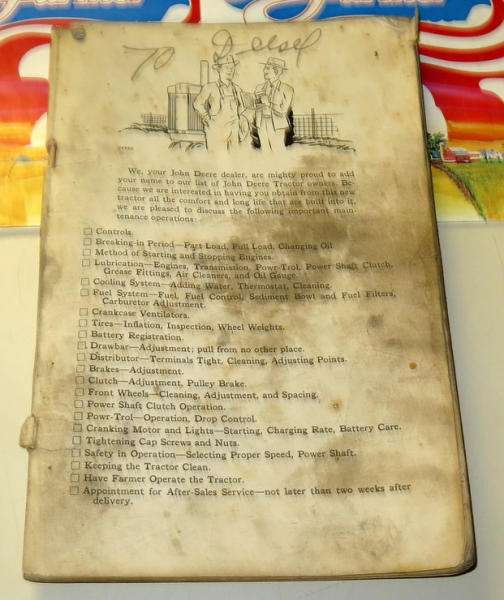 70 Diesel
We, your John Deere dealer, are mighty proud to add
your name to our list of John Deere Tractor owners. Be-
cause we are interested in having you obtain from this new
tractor all the comfort and long life that are built into it,
we are pleased to discuss the following important main-
tenance operations:
☐ Controls.
☐ Breaking-in Period—Part Load, Full Load, Changing Oil.
☐ Method of Starting and Stopping Engines.
☐ Lubrication—Engines, Transmission, Powr-Trol, Power Shaft Clutch,
Grease Fittings, Air Cleaners, and Oil Gauge.
☐ Cooling System—Adding Water, Thermostat, Cleaning.
☐ Fuel System—Fuel, Fuel Control, Sediment Bowl and Fuel Filters,
Carburetor Adjustment.
☐ Crankcase Ventilators.
☐ Tires—Inflation, Inspection, Wheel Weights.
☐ Battery Registration.
☐ Drawbar—Adjustment; pull from no other place.
☐ Distributor—Terminals Tight, Cleaning, Adjusting Points.
☐ Brakes—Adjustment.
☐ Clutch—Adjustment, Pulley Brake.
☐ Front Wheels—Cleaning, Adjustment, and Spacing.
☐ Power Shaft Clutch Operation.
☐ Powr-Trol—Operation, Drop Control.
☐ Cranking Motor and Lights—Starting, Charging Rate, Battery Care.
☐ Tightening Cap Screws and Nuts.
☐ Safety in Operation—Selecting Proper Speed, Power Shaft.
☐ Keeping the Tractor Clean.
☐ Have Farmer Operate the Tractor.
☐ Appointment for After-Sales Service—not later than two weeks after
delivery.